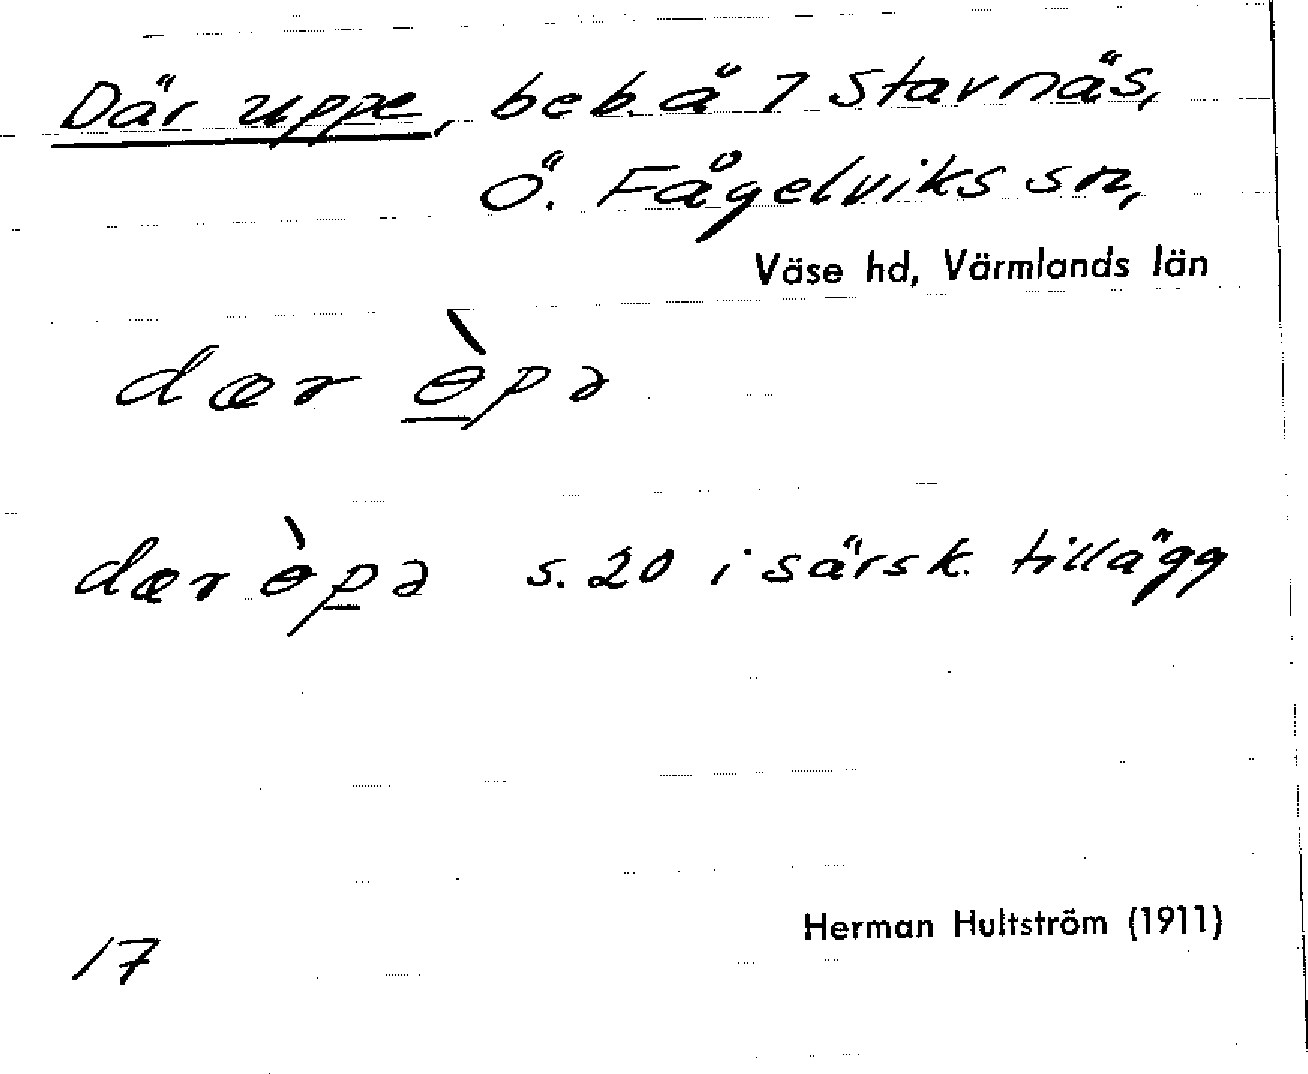 Där uppe, beb. å 7 Stavnäs,
Ö. Fågelviks sn,
Väse hd, Värmlands län
dær ɵ̀pə
dær ɵ̀pə s. 20 i särsk. tillägg
Herman Hultström (1911)
17